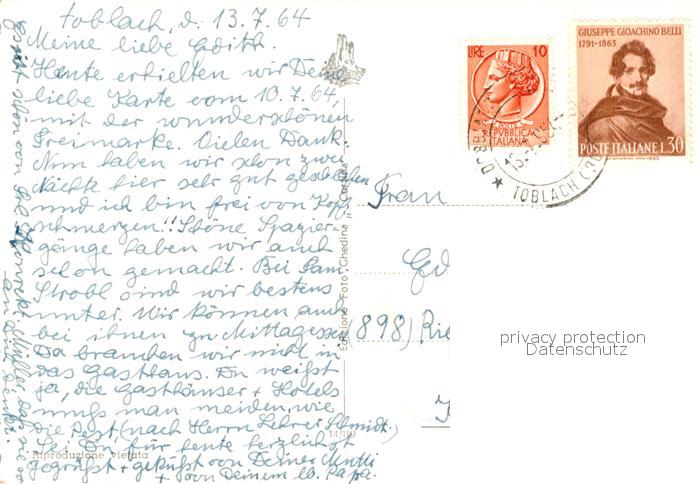 Toblach, d. 13.7.64
Meine liebe Edith.
Heute erhielten wir Deine
liebe Karte vom 10.7.64,
mit der wunderschönen
Freimarke. Vielen Dank.
Nun haben wir schon zwei
Nächte hier sehr gut geschlafen
und ich bin frei von Kopf
schmerzen!! Schöne Spazier-
gänge haben wir auch
schon gemacht. Bei Fam.
Strobl sind wir bestens
unter. Wir können auch
bei ihnen zu Mittagessen
Da brauchen wir nicht in
das Gasthaus. Du weißt
ja, die Gasthäuser + Hotels
muß man meiden, wie
die Pest, (nach Herrn Lehrer Schmidt.)
Sei Du für heute herzlichst
gegrüßt + geküßt von Deiner Mutti
+ von Deinem lb. Papa.
schon von Müller, das sie so
an Dich denkt.
Frau
Ed
(898) Rie
Edizione Foto Ghedina - Cortina
14/110
Riproduzione vietata
LIRE 10
REPVBBLICA
ITALIANA
GIUSEPPE GIOACHINO BELLI
1791-1863
POSTE ITALIANE L.30
TOBLACH
privacy protection
Datenschutz